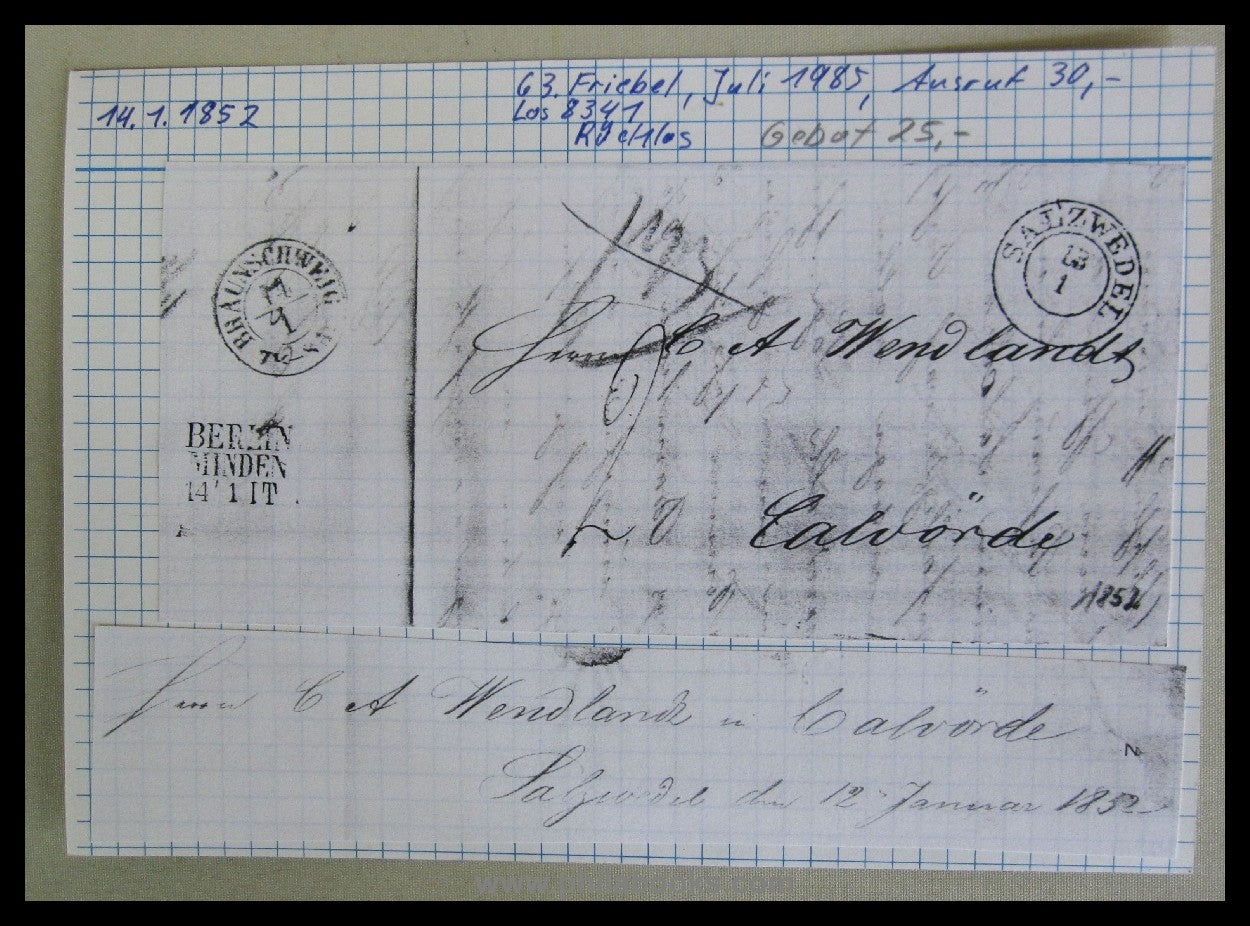 63. Friebel, Juli 1985, Ausruf 30,-
14.1.1852
Los 8341
Rücklos Gebot 25,-
BRAUNSCHWEIG
SALZWEDEL
13
1
Herrn C A Wendlandt
BERLIN
MINDEN
14 1 IT
Calvörde
1852
Herrn C A Wendlandt in Calvörde
N
Salzwedel den 12 Januar 1852